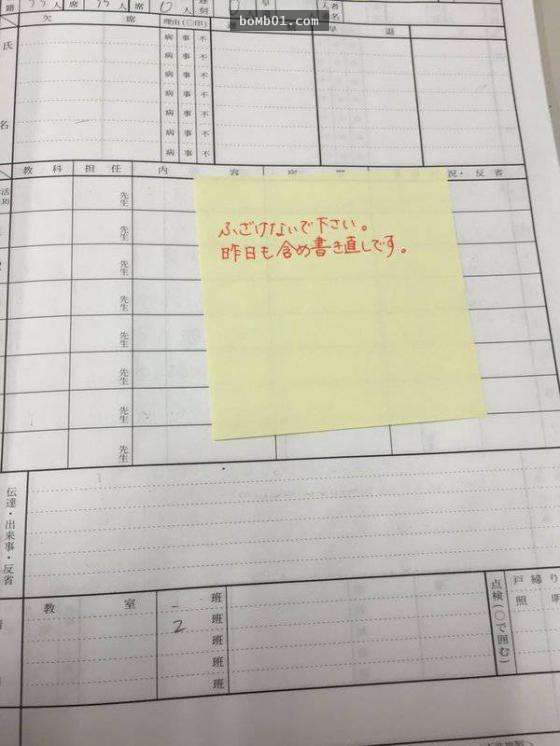 bomb01.com
籍 人 席 人 席 0 人
欠 席 理由(○印) 早 退
氏
病 事 不
病 事 不
病 事 不
病 事 不
病 事 不
病 事 不
病 事 不
名
教 科 担 任 内 容 況・反省
先生
先生
先生
先生
先生
先生
先生
先生
ふざけないで下さい。
昨日も含め書き直しです。
伝達・出来事・反省
教 室 班
2 班
班
班
班
点検(○で囲む)
戸締り
照